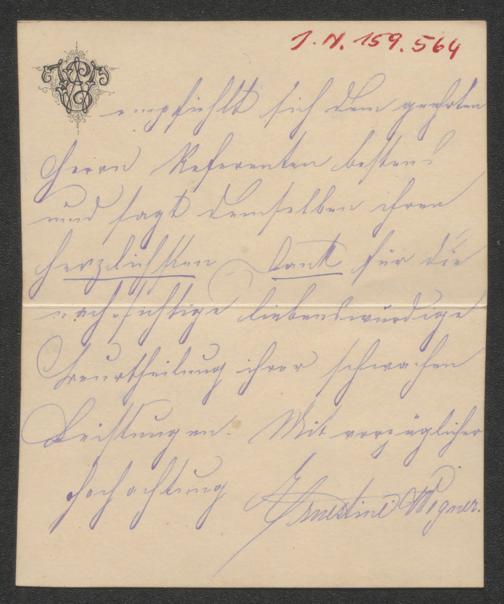 J.N. 159.564
empfiehlt sich dem geehrten
Herrn Referenten bestens
und sagt demselben ihren
herzlichsten Dank für die
nachsichtige liebenswürdige
Beurtheilung ihrer schwachen
Leistungen. Mit vorzüglicher
Hochachtung Ernestine Wegner.